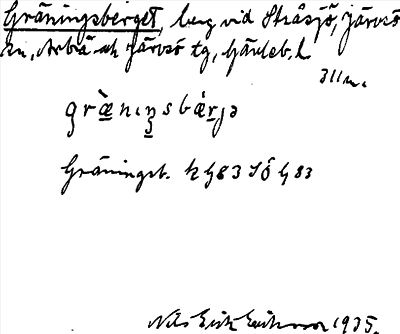 Gräningsberget, berg vid Stråsjö, Järvsö
sn, Arbrå och Järvsö tg, Gävleb. l.
311 m.
græ̀nıŋsbæ̀rjə
Gräningsb. K G 83 SÖ G 83
Nils Erik Eriksson 1935.